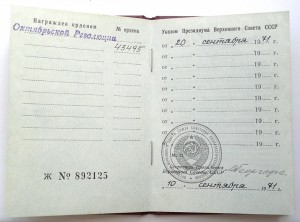 Награжден орденом
№ ордена
Октябрьской Революции
43445
Ж № 892125
Указом Президиума Верховного Совета СССР
от „20" сентября 1971 г.
от „ " 19 г.
от „ " 19 г.
от „ " 19 г.
от „ " 19 г.
от „ " 19 г.
от „ " 19 г.
от „ " 19 г.
от „ " 19 г.
М. П.
Секретарь Президиума
Верховного Совета СССР
„10" сентября 1971 г.